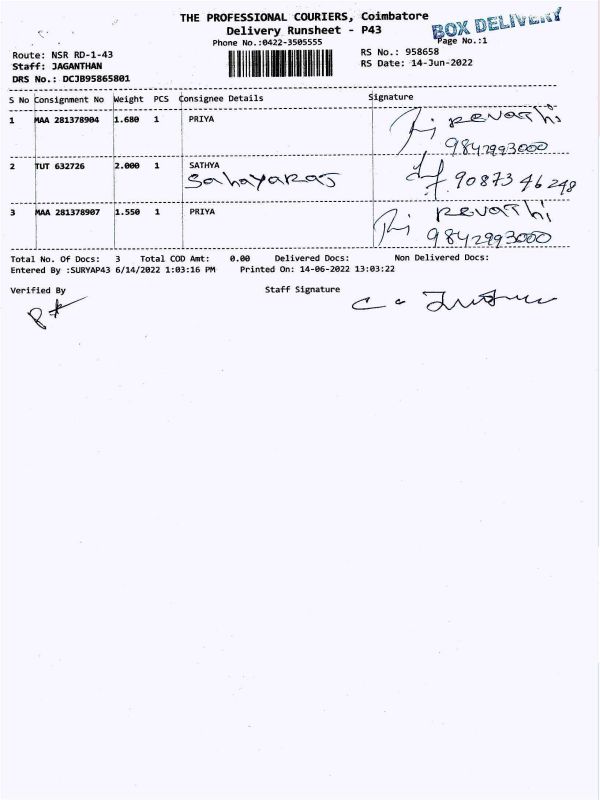 THE PROFESSIONAL COURIERS, Coimbatore
BOX DELIVERY
Delivery Runsheet - P43
Page No.:1
Phone No.:0422-3505555
Route: NSR RD-1-43
RS No.: 958658
Staff: JAGANTHAN
RS Date: 14-Jun-2022
DRS No.: DCJB95865801
S No Consignment No Weight PCS Consignee Details Signature
1 MAA 281378904 1.680 1 PRIYA Revathi
9842993000
2 TUT 632726 2.000 1 SATHYA
Sahayaraj 90873 46248
3 MAA 281378907 1.550 1 PRIYA Revathi
9842993000
Total No. Of Docs: 3 Total COD Amt: 0.00 Delivered Docs: Non Delivered Docs:
Entered By :SURYAP43 6/14/2022 1:03:16 PM Printed On: 14-06-2022 13:03:22
Verified By Staff Signature